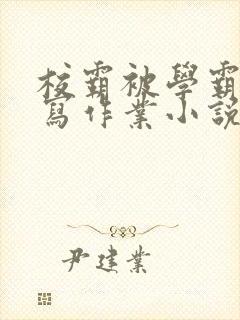 校霸被學霸
寫作業小說
尹建業